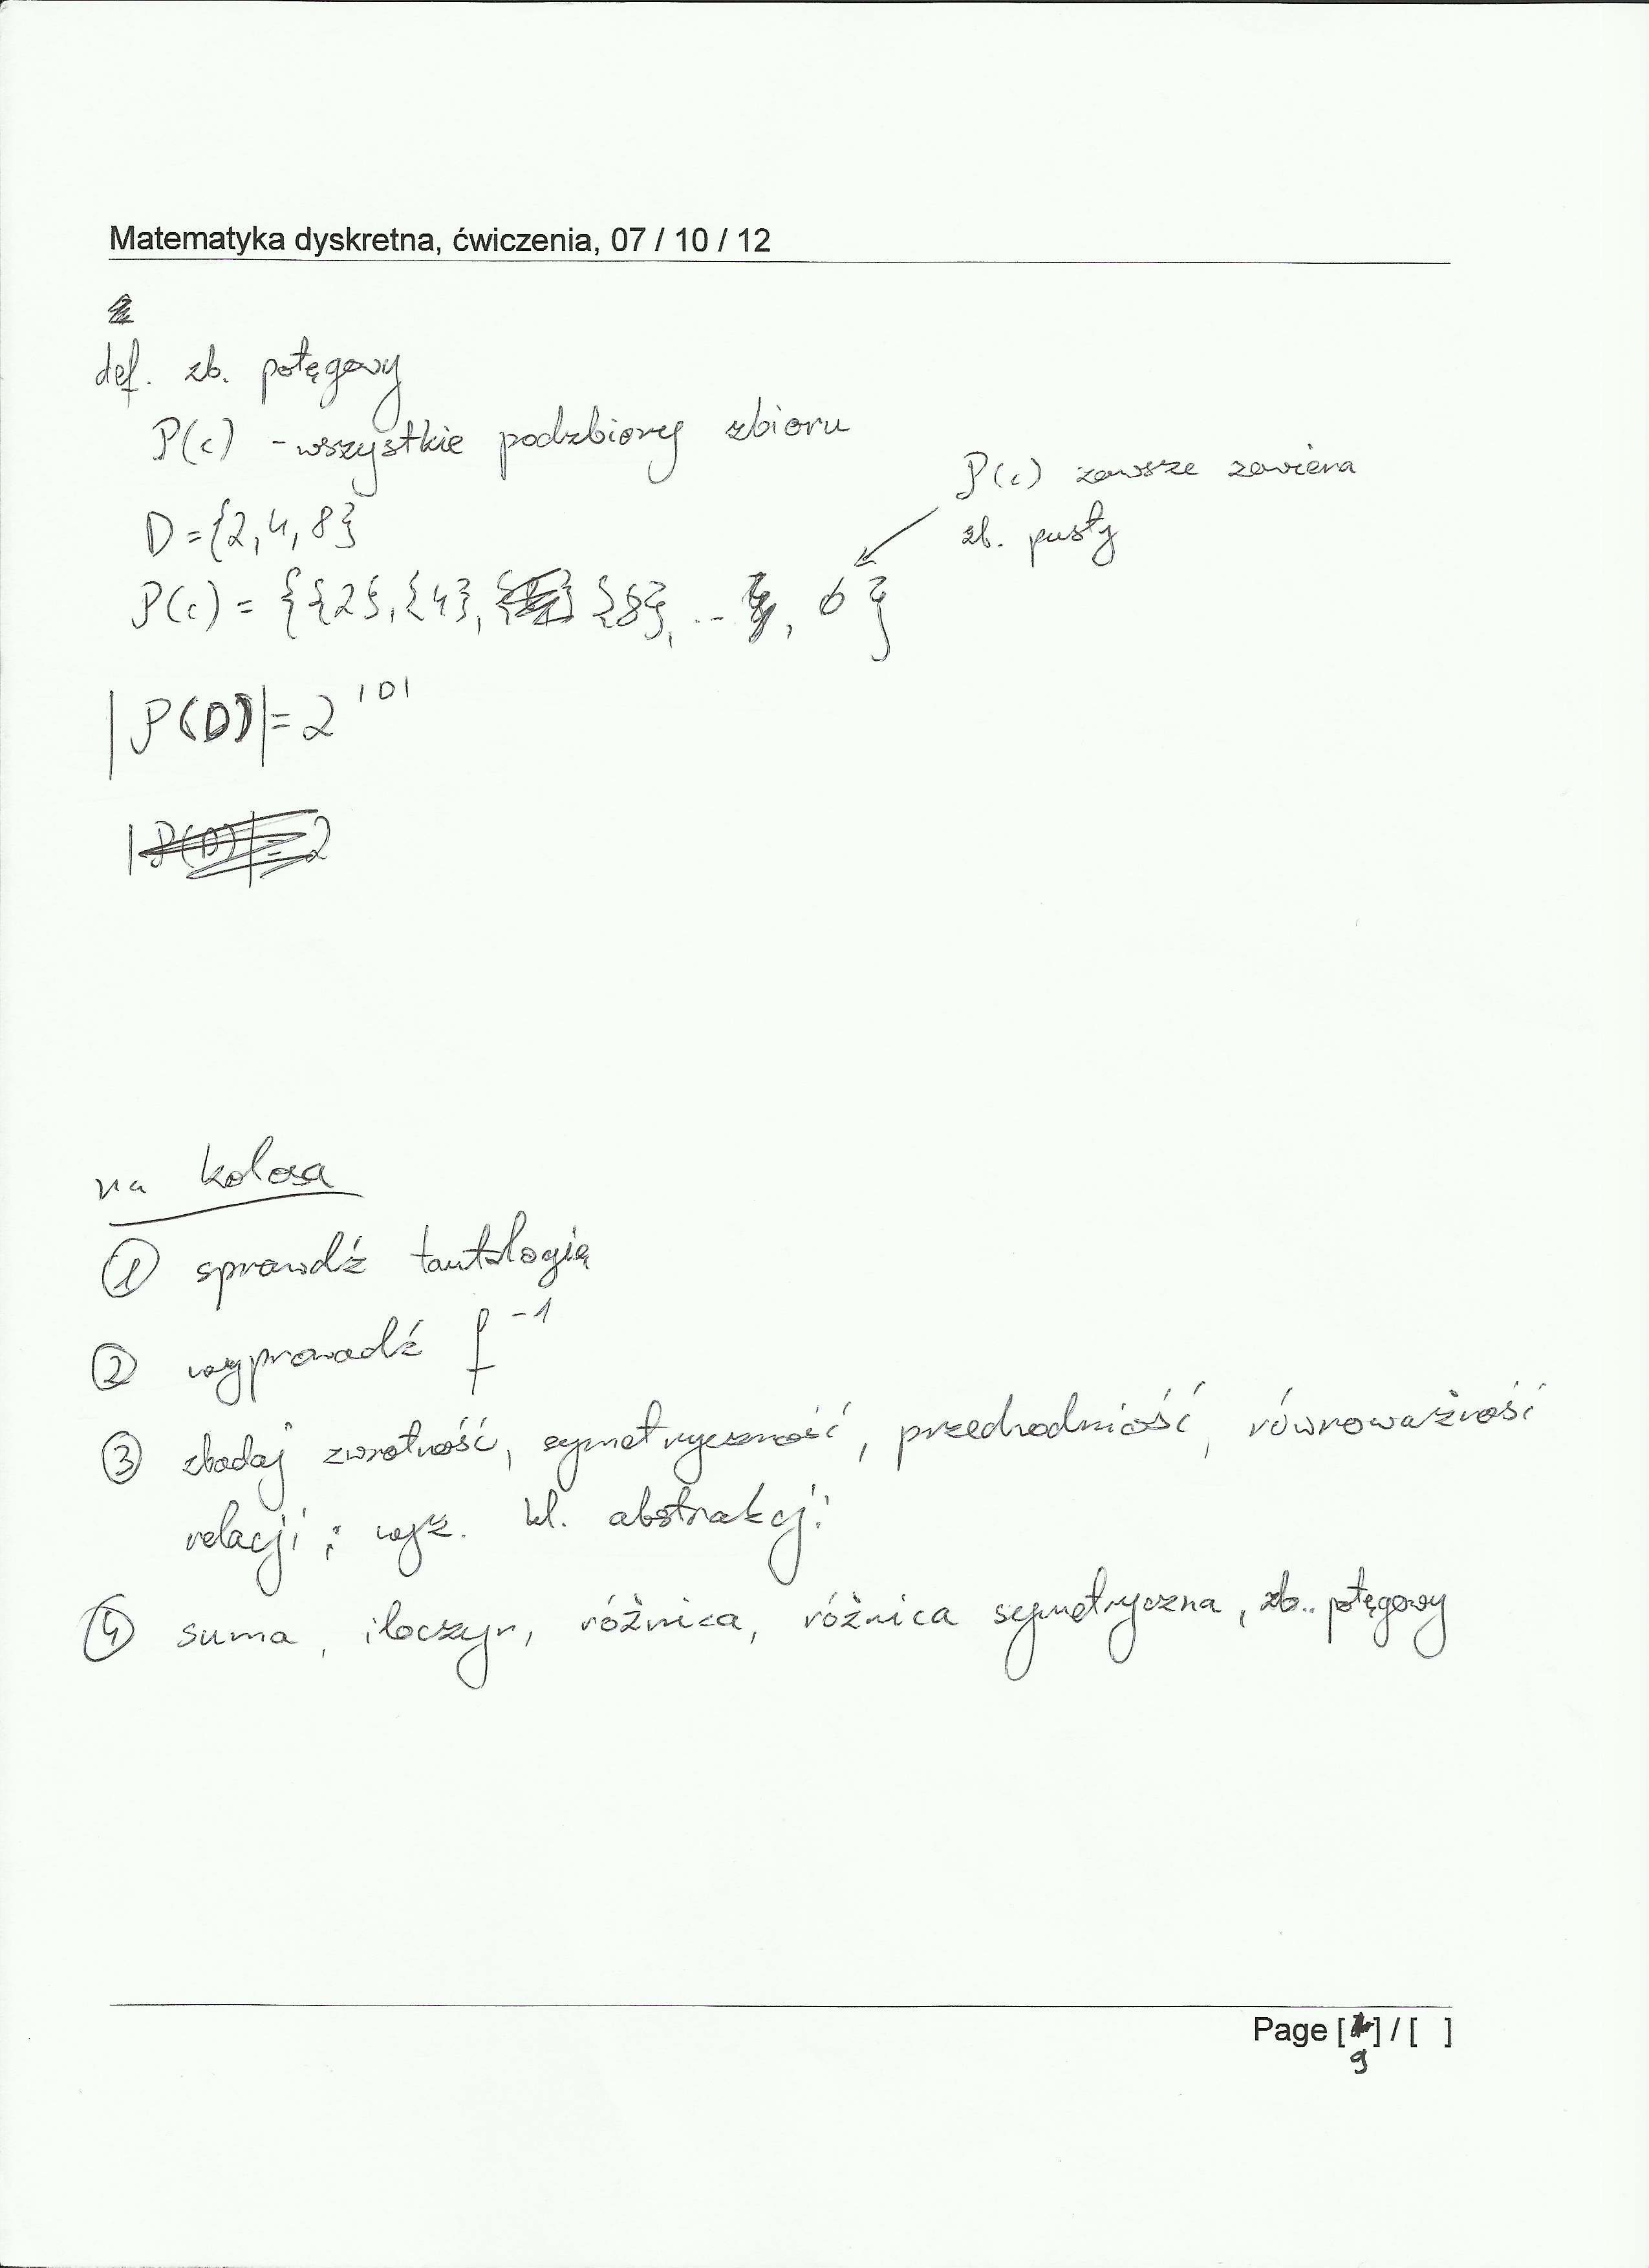 Matematyka dyskretna, ćwiczenia, 07 / 10 / 12
def. zb. potęgowy
P(c) - wszystkie podzbiory zbioru
P(c) zawsze zawiera
zb. pusty
D = {2, 4, 8}
P(c) = {{2}, {4}, {8}, ... , ϕ}
|P(D)| = 2^|D|
|P(D)| = 2
na kolosa
① sprawdź tautologię
② wyprowadź f^-1
③ zbadaj zwrotność, symetryczność, przechodniość, równoważność
relacji ; wyz. kl. abstrakcji
④ suma, iloczyn, różnica, różnica symetryczna, zb. potęgowy
Page [ ] / [ ]
9